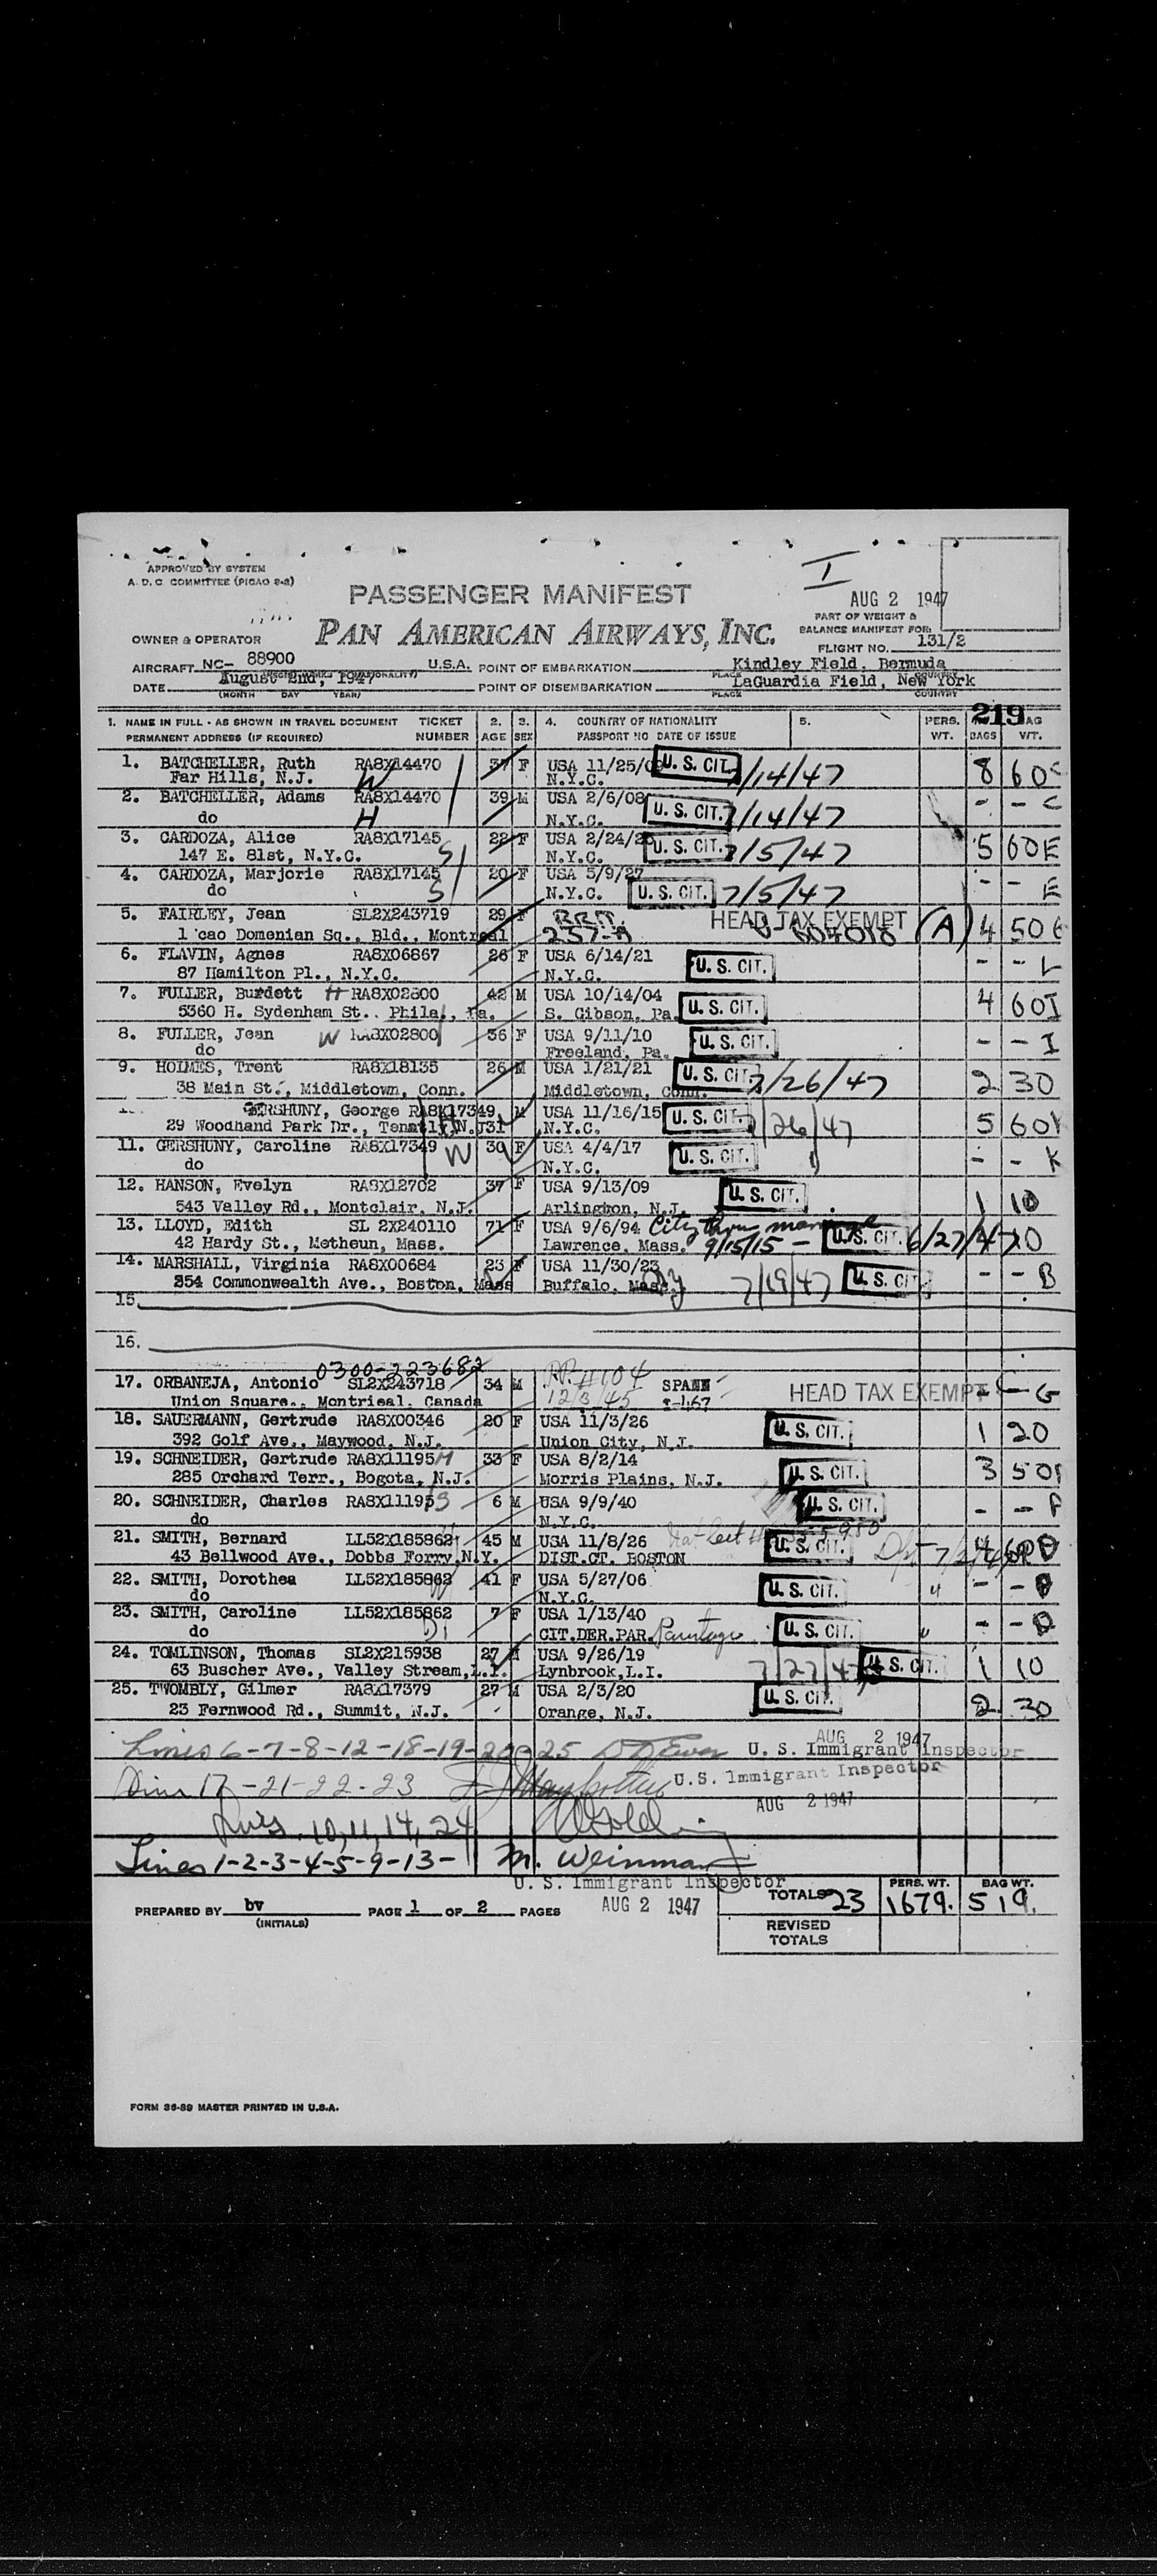 APPROVED BY SYSTEM
A. D. C. COMMITTEE (PICAO 9-2)
I
PASSENGER MANIFEST
AUG 2 1947
PART OF WEIGHT &
BALANCE MANIFEST FOR:
OWNER & OPERATOR PAN AMERICAN AIRWAYS, INC.
FLIGHT NO. 131/2
AIRCRAFT NC- 88900 U.S.A. POINT OF EMBARKATION Kindley Field, Bermuda
DATE August 2nd, 1947 POINT OF DISEMBARKATION LaGuardia Field, New York
(MONTH DAY YEAR) PLACE COUNTRY
219
1. NAME IN FULL - AS SHOWN IN TRAVEL DOCUMENT TICKET 2. 3. 4. COUNTRY OF NATIONALITY 5. PERS. BAG
PERMANENT ADDRESS (IF REQUIRED) NUMBER AGE SEX PASSPORT NO DATE OF ISSUE WT. BAGS WT.
1. BATCHELLER, Ruth RA8X14470 37 F USA 11/25/09 U. S. CIT. 7/14/47 8 60 C
Far Hills, N.J. W N.Y.C.
2. BATCHELLER, Adams RA8X14470 39 M USA 2/6/08 U. S. CIT. 7/14/47 - - C
do H N.Y.C.
3. CARDOZA, Alice RA8X17145 22 F USA 2/24/25 U. S. CIT. 7/5/47 5 60 E
147 E. 81st, N.Y.C. S N.Y.C.
4. CARDOZA, Marjorie RA8X17145 20 F USA 5/9/27 U. S. CIT. 7/5/47 - - E
do S N.Y.C.
5. FAIRLEY, Jean SL2X243719 29 F HEAD TAX EXEMPT (A) 4 50 G
1 cao Domenian Sq., Bld., Montreal 257-A
6. FLAVIN, Agnes RA8X06867 26 F USA 6/14/21 U. S. CIT. - - L
87 Hamilton Pl., N.Y.C. N.Y.C.
7. FULLER, Burdett H RA8X02800 42 M USA 10/14/04 U. S. CIT. 4 60 I
5360 H. Sydenham St., Phila., Pa. S. Gibson, Pa.
8. FULLER, Jean W RA8X02800 36 F USA 9/11/10 U. S. CIT. - - I
do Freeland, Pa.
9. HOLMES, Trent RA8X18135 26 M USA 1/21/21 U. S. CIT. 7/26/47 2 30
38 Main St., Middletown, Conn. Middletown, Conn.
GERSHUNY, George RA8X17349 M USA 11/16/15 U. S. CIT. 7/26/47 5 60 K
29 Woodhand Park Dr., Tenafly, N.J. 31 N.Y.C.
11. GERSHUNY, Caroline RA8X17349 W 30 F USA 4/4/17 U. S. CIT. - - K
do N.Y.C.
12. HANSON, Evelyn RA8X12702 37 F USA 9/13/09 U. S. CIT. 1 10
543 Valley Rd., Montclair, N.J. Arlington, N.J.
13. LLOYD, Edith SL 2X240110 71 F USA 9/6/94 City thru marriage
42 Hardy St., Metheun, Mass. Lawrence, Mass. 9/15/15 - U. S. CIT. 6/27/47 20
14. MARSHALL, Virginia RA8X00684 23 F USA 11/30/23 - - B
254 Commonwealth Ave., Boston, Mass Buffalo, Mass. NY 7/19/47 U. S. CIT.
15.
16.
0300-223682
17. ORBANEJA, Antonio SL2X243718 34 M P.P. #1104 SPAIN HEAD TAX EXEMPT - - G
Union Square., Montrieal, Canada 12/3/45 I-467
18. SAUERMANN, Gertrude RA8X00346 20 F USA 11/3/26 U. S. CIT. 1 20
392 Golf Ave., Maywood, N.J. Union City, N.J.
19. SCHNEIDER, Gertrude RA8X11195 M 33 F USA 8/2/14 U. S. CIT. 3 50 F
285 Orchard Terr., Bogota, N.J. Morris Plains, N.J.
20. SCHNEIDER, Charles RA8X11195 S 6 M USA 9/9/40 U. S. CIT. - - F
do N.Y.C.
21. SMITH, Bernard LL52X185862 45 M USA 11/8/26 U. S. CIT. 4 60 D
43 Bellwood Ave., Dobbs Ferry, N.Y. DIST.CT. BOSTON
22. SMITH, Dorothea LL52X185862 W 41 F USA 5/27/06 U. S. CIT. " - - D
do N.Y.C.
23. SMITH, Caroline LL52X185862 7 F USA 1/13/40 U. S. CIT. " - - D
do CIT.DER.PAR. Parentage
24. TOMLINSON, Thomas SL2X215938 27 M USA 9/26/19 7/27/47 U. S. CIT. 1 10
63 Buscher Ave., Valley Stream, L.I. Lynbrook, L.I.
25. TWOMBLY, Gilmer RA8X17379 27 M USA 2/3/20 U. S. CIT. 2 30
23 Fernwood Rd., Summit, N.J. Orange, N.J.
AUG 2 1947
Lines 6-7-8-12-18-19-20-25 U. S. Immigrant Inspector
Lines 17-21-22-23 U.S. Immigrant Inspector
AUG 2 1947
Lines 10, 11, 14, 24
Lines 1-2-3-4-5-9-13- M. Weinman
U. S. Immigrant Inspector
PERS. WT. BAG WT.
PREPARED BY bv PAGE 1 OF 2 PAGES AUG 2 1947 TOTALS 23 1679. 519.
(INITIALS)
REVISED
TOTALS
FORM 36-89 MASTER PRINTED IN U.S.A.